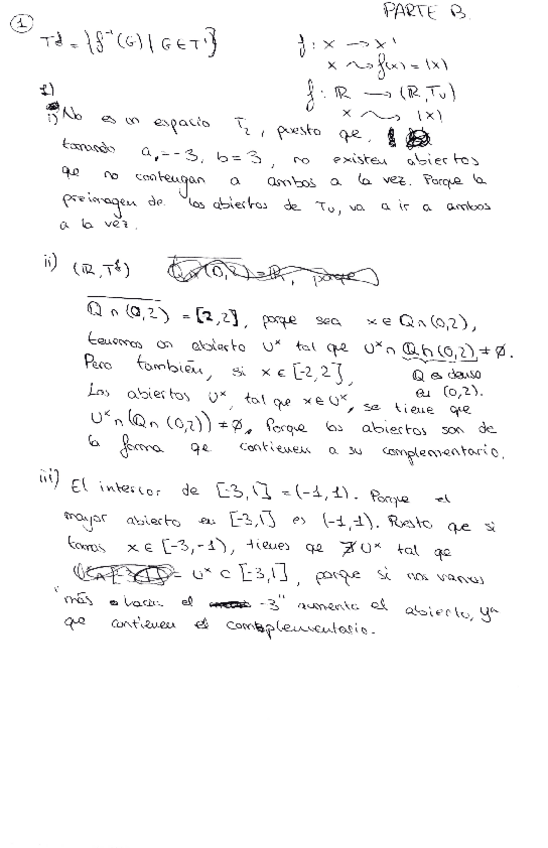 PARTE B.
①
T^f = {f⁻¹(G) | G ∈ T'}
f: X → X'
x ⇝ f(x) = |x|
f: ℝ → (ℝ, Tu)
x ⇝ |x|
1)
i) No es un espacio T₂, puesto que,
tomando a = -3, b = 3, no existen abiertos
que no contengan a ambos a la vez. Porque la
preimagen de los abiertos de Tu, va a ir a ambos
a la vez.
ii) (ℝ, T^f)
Q∩(0,2) = [-2,2], porque sea x ∈ Q∩(0,2),
tenemos un abierto U^x tal que U^x ∩ Q∩(0,2) ≠ ∅.
Pero también, si x ∈ [-2,2],
Q es denso
en (0,2).
Los abiertos U^x, tal que x ∈ U^x, se tiene que
U^x ∩ (Q∩(0,2)) ≠ ∅, Porque los abiertos son de
la forma que contienen a su complementario.
iii) El interior de [-3,1] = (-1,1). Porque el
mayor abierto en [-3,1] es (-1,1). Puesto que si
tomas x ∈ [-3,-1), tienes que ∄ U^x tal que
= U^x ⊂ [-3,1], porque si nos vamos
"más hacia el -3" aumenta el abierto, ya
que contienen el complementario.